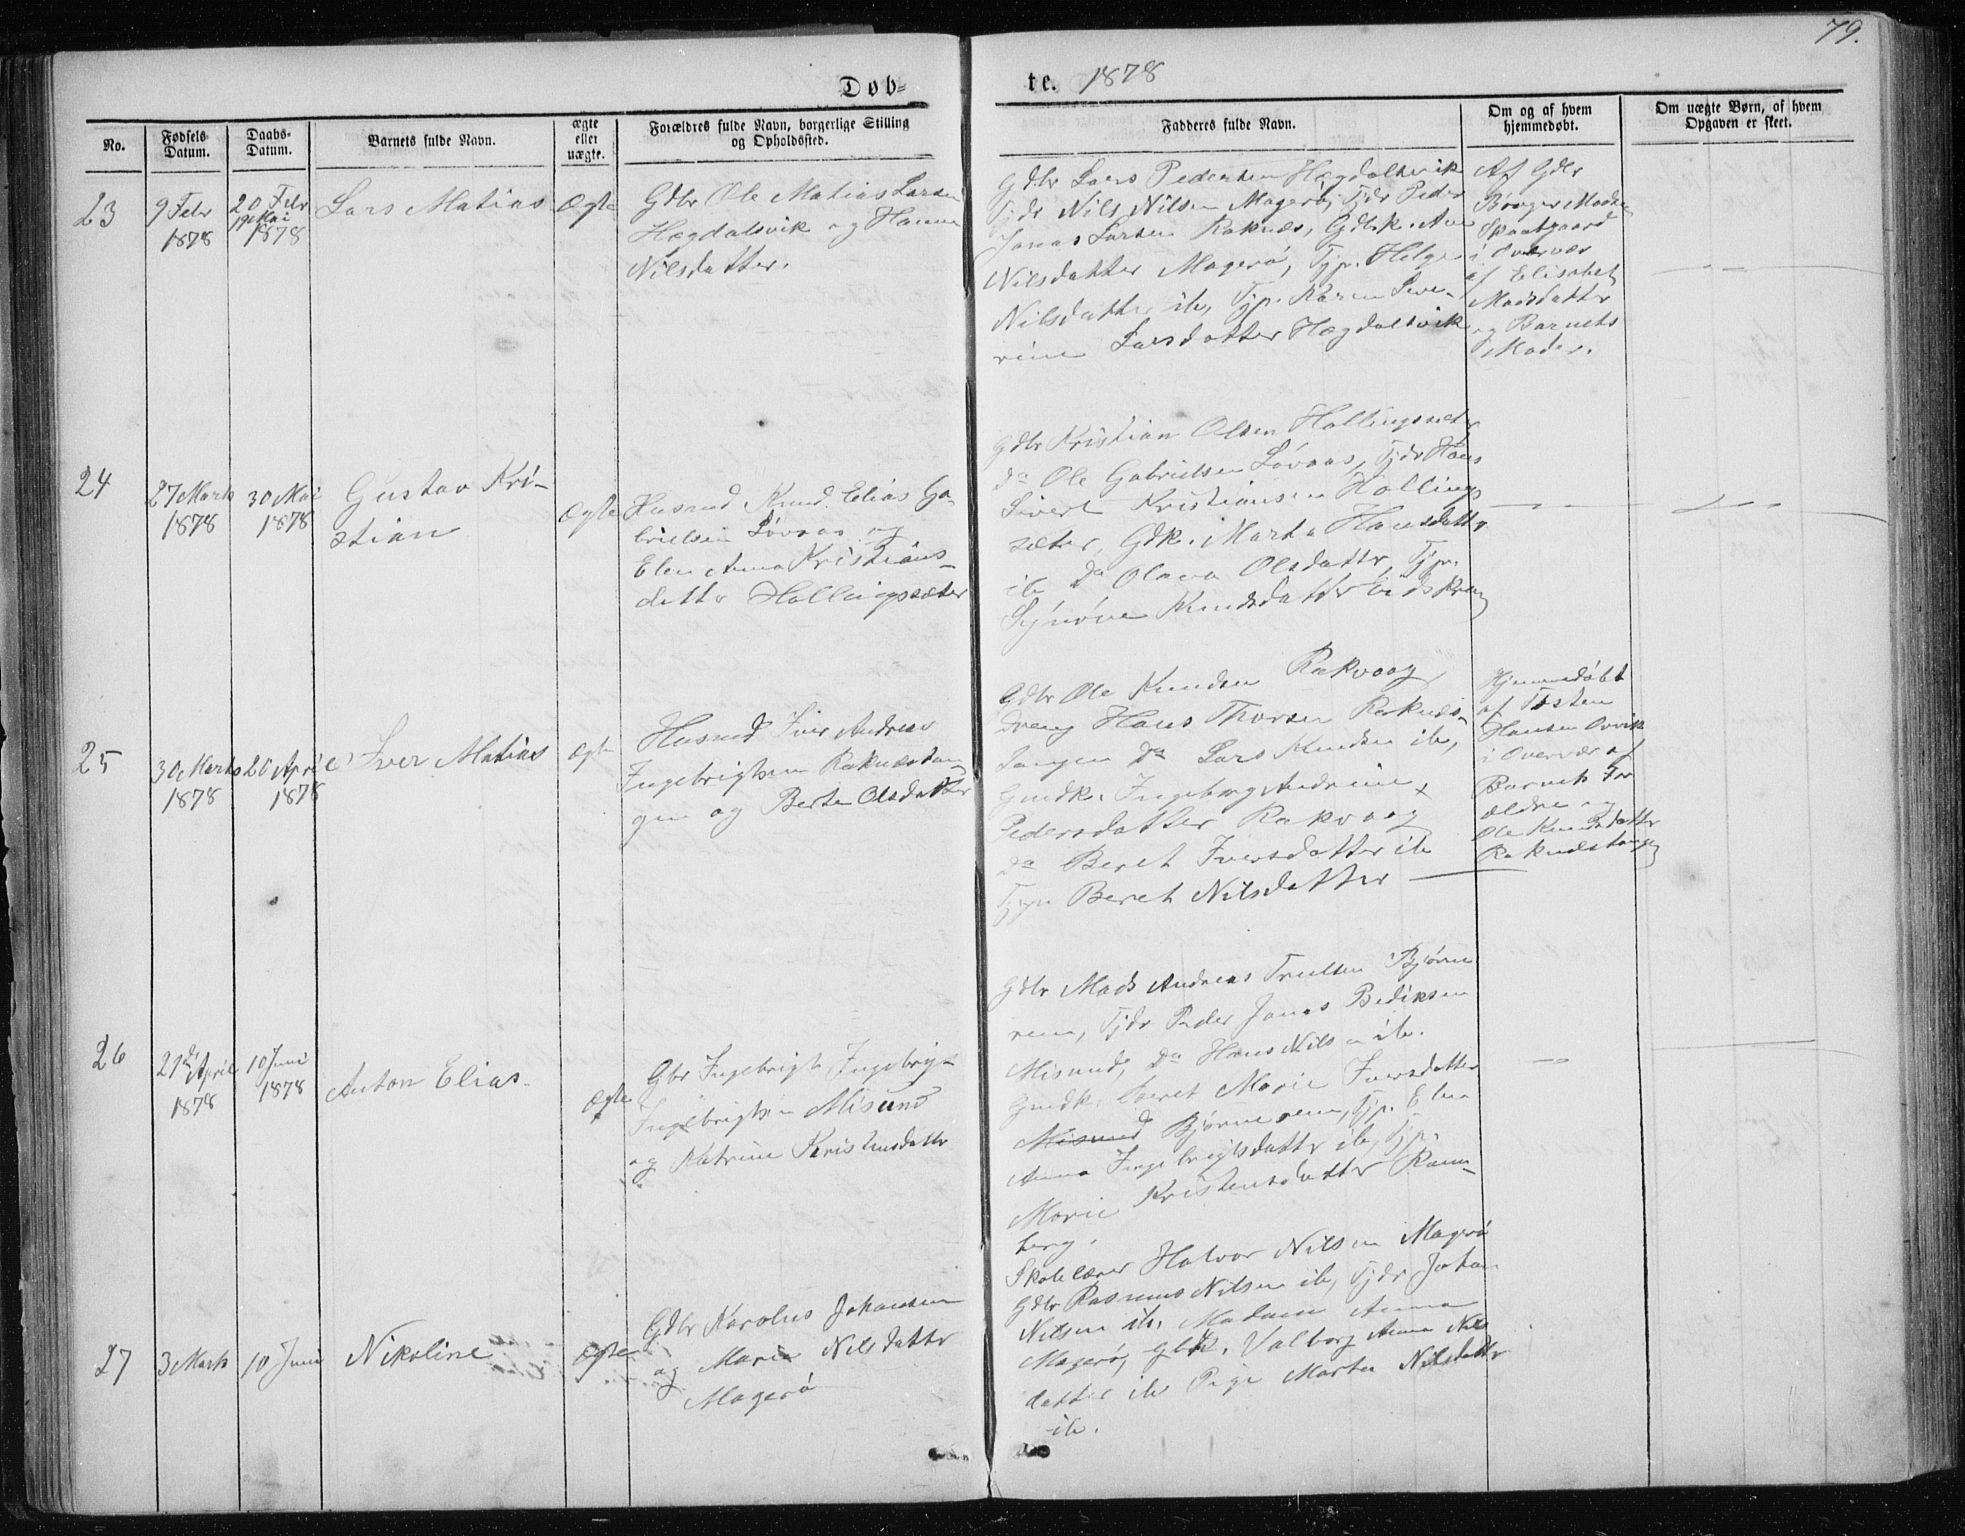 79.
Døb- te. 1878
No.
Fødsels Datum.
Daabs- Datum.
Barnets fulde Navn.
ægte eller uægte.
Forældres fulde Navn, borgerlige Stilling og Opholdssted.
Fadderes fulde Navn.
Om og af hvem hjemmedøbt.
Om uægte Børn, af hvem Opgaven er skeet.
23
9 Febr
1878
20 Febr
19 Mai
1878
Lars Matias
Ægte
Gdbr Ole Matias Larsen
Hægdalsvik og Hanna
Nilsdatter.
Gdbr Lars Pedersen Hægdalsvik
Tjdr Nils Nilsen Magerø, Tjdr Peder
Jonas Larsen Raknes, Gdbk. Ane
Nilsdatter Magerø, Tjp. Helge
Nilsdatter ib, Tjp. Karen Seve-
rine Larsdatter Hægdalsvik
Af Gdbr
Madsen
i Overvær
af Elisabet
Madsdatter
og Barnets
Moder.
24
27 Marts
1878
30 Mai
1878
Gustav Kri-
stian
Ægte
Husmd Knud Elias Ga-
brielsen Løvaas og
Elen Anna Kristians-
datter Hollingssæter
Gdbr Kristian Olsen Hollingssæter
Do Ole Gabrielsen Løvaas, Tjdr Hans
Sivert Kristiansen Hollings
sæter, Gdk. Marta Hansdattr
ib Do Olava Olsdattr, Tjp.
Synøve Knudsdatter
25
30 Marts
1878
20 April
1878
Iver Matias
Ægte
Husmd Iver Andreas
Ingebrigtsen Raknestan
gen og Berte Olsdatter
Gdbr Ole Knudsen Rakvaag
Dreng Hans Thorsen Raknes-
tangen Do Lars Knudsen ib,
Gmdk. Ingeborg Andrine
Pedersdatter Rakvaag
Do Beret Iversdatter ib
Tjp Beret Nilsdatter
Hjemmedøbt
af Tosten
Hansen Orvik
i Overvær af
Barnets For
ældre og
Ole Knudsdatter
Raknestangen
26
21de April
1878
10 Juni
1878
Anton Elias.
Ægte
Gbr Ingebrigt Ingebrigt
Ingebrigtsen Misund
og Katrine Kristensdattr
Gdbr Mads Andreas Truelsen Bjørne
rem, Tjdr Peder Jonas Bediksen
Misund, Do Hans Nilsen ib.
Gmdk. Beret Marie Iversdatter
Misund Bjørnerem, Tjp. Elen
Anna Ingebrigtsdatter ib, Tjp.
Marie Kristensdatter Ram-
berg.
27
3 Marts
10 Juni
Nikoline
Ægte
Gdbr Karolus Johansen
og Maria Nilsdattr
Magerø
Skolelærer Halvor Nilsen Magerø
Gdbr Rasmus Nilsen ib, Tjdr Johan
Nilsen ib. Madam Anna
Magerø, Gbk. Valborg Anna Nils
datter ib Pige Marta Nilsdattr
ib.